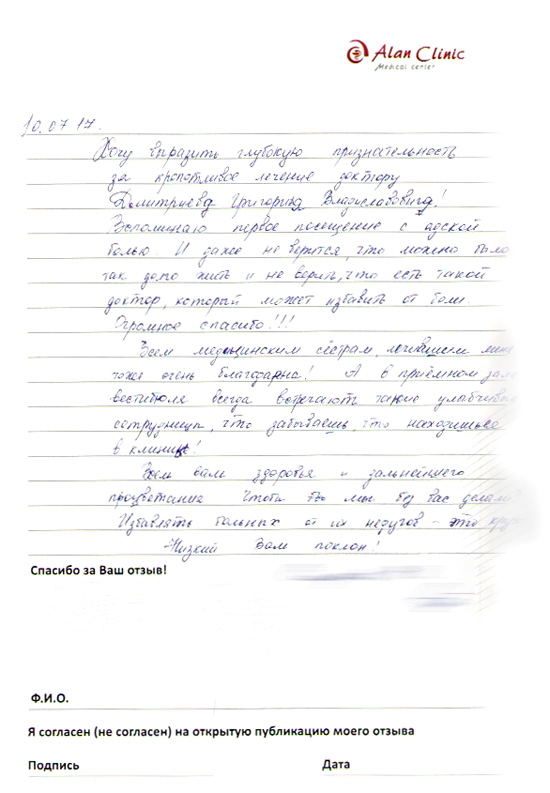 Alan Clinic
Medical center
10.07.17.
Хочу выразить глубокую признательность
за кропотливое лечение доктору
Дмитриеву Григорию Владиславовичу!
Вспоминаю первое посещение с адской
болью. И даже не верится, что можно было
так долго жить и не верить, что есть такой
доктор, который может избавить от боли.
Огромное спасибо!!!
Всем медицинским сёстрам, лечившим меня
тоже очень благодарна! А в приёмном зале
вестибюля всегда встречают такие улыбчивые
сотрудницы, что забываешь, что находишься
в клинике!
Всем вам здоровья и дальнейшего
процветания Чтобы бы мы без вас делали
Избавлять больных от их недугов - это
Низкий Вам поклон!
Спасибо за Ваш отзыв!
Ф.И.О.
Я согласен (не согласен) на открытую публикацию моего отзыва
Подпись Дата